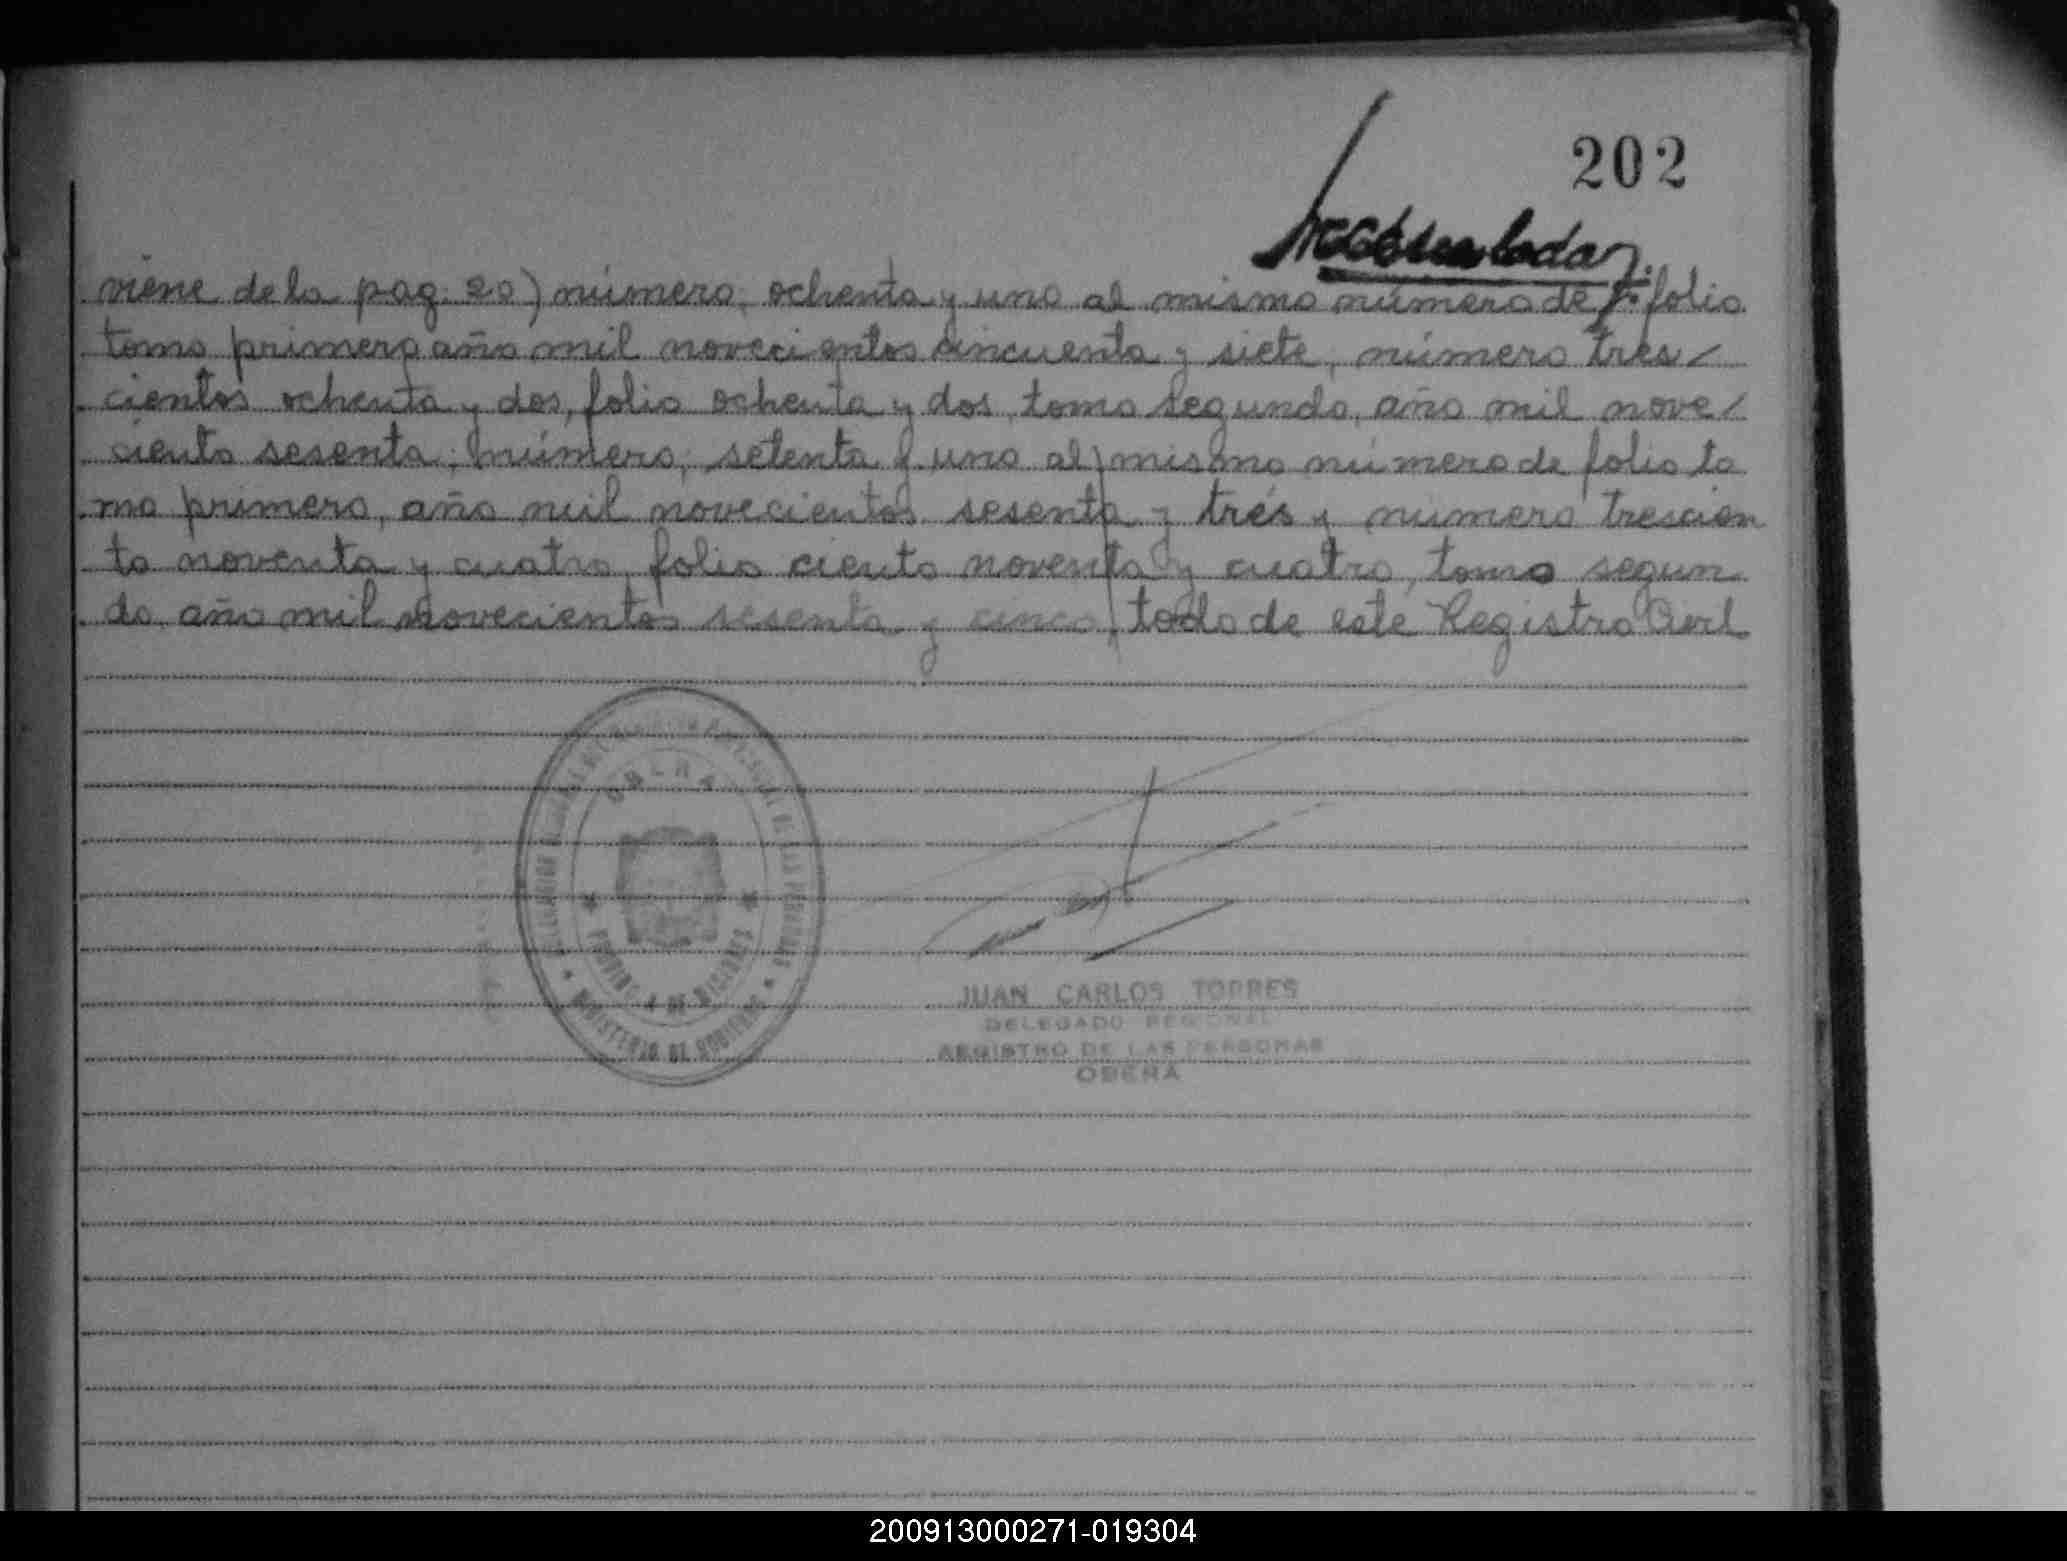 202
viene de la pag. 20) número, ochenta y uno al mismo número de folio
tomo primero año mil novecientos cincuenta y siete, número tres/
cientos ochenta y dos, folio ochenta y dos, tomo segundo, año mil nove/
ciento sesenta; número, setenta y uno al mismo número de folio to
mo primero, año mil novecientos sesenta y trés y numero trescien
to noventa y cuatro, folio ciento noventa y cuatro, tomo segun
do, año mil novecientos sesenta y cinco, todo de este Registro Civil
OBERA
PROVINCIA DE MISIONES
MINISTERIO DE GOBIERNO
JUAN CARLOS TORRES
DELEGADO REGIONAL
REGISTRO DE LAS PERSONAS
OBERA
200913000271-019304